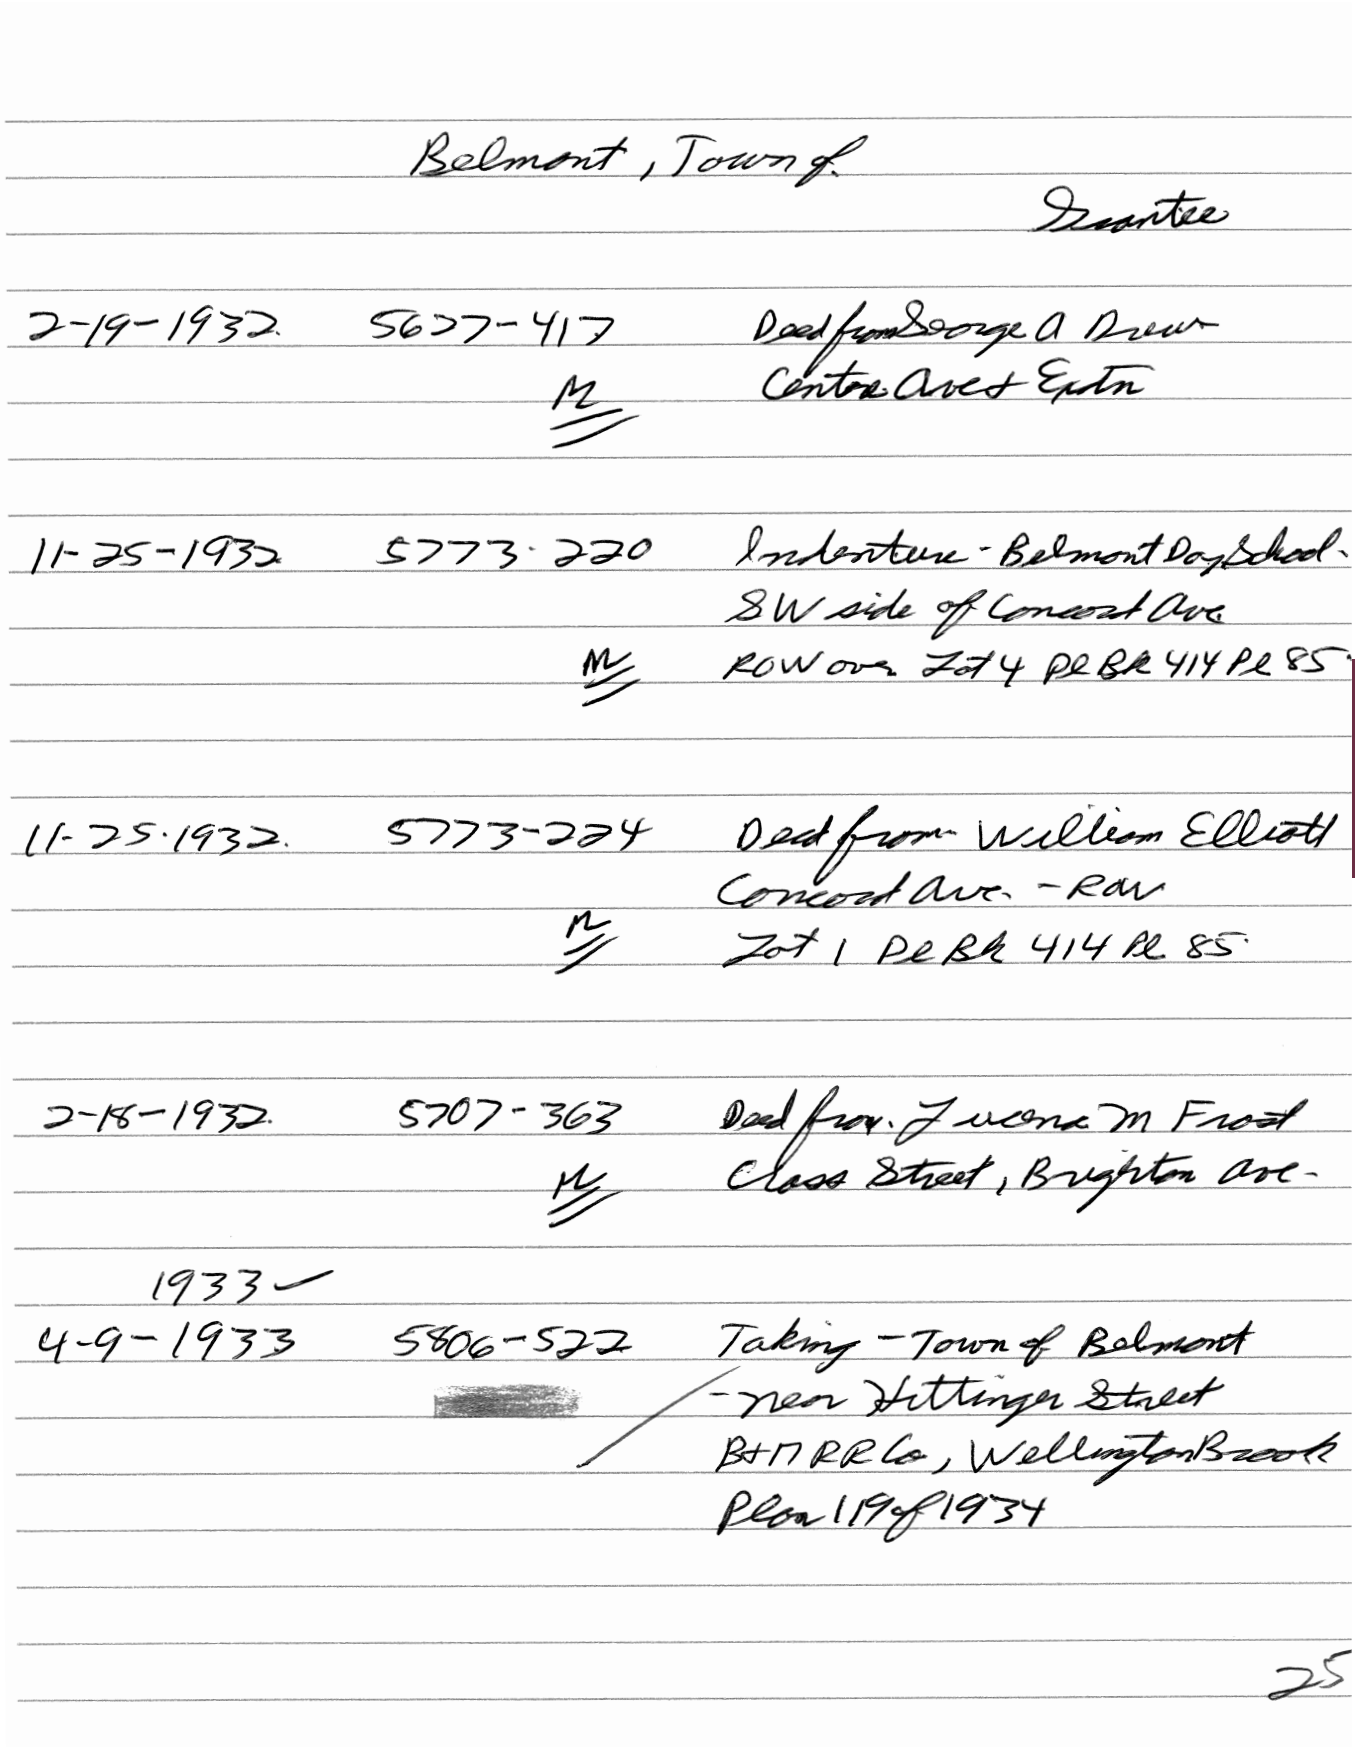 Belmont, Town of.
Grantee
2-19-1932. 5627-417 Deed from George A Drew
Centre Ave & Extn
M
11-25-1932 5773-220 Indenture - Belmont Day School -
SW side of Concord Ave
M ROW over Lot 4 Pl Bk 414 Pl 85.
11-25-1932. 5773-224 Deed from William Elliott
Concord Ave. - ROW
M Lot 1 Pl Bk 414 Pl 85.
2-18-1932. 5707-363 Deed from M Frost
M Street, Brighton Ave -
1933 ✓
4-9-1933 5806-522 Taking - Town of Belmont
- near Hittinger Street
B+M RR Co, Wellington Brook
Plan 119 of 1934
25